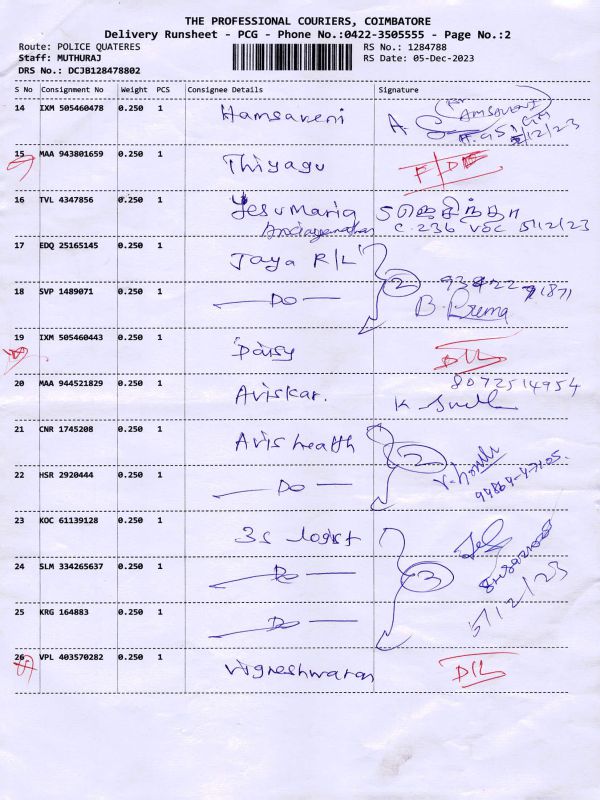 THE PROFESSIONAL COURIERS, COIMBATORE
Delivery Runsheet - PCG - Phone No.:0422-3505555 - Page No.:2
Route: POLICE QUATERES RS No.: 1284788
Staff: MUTHURAJ RS Date: 05-Dec-2023
DRS No.: DCJB128478802
S No Consignment No Weight PCS Consignee Details Signature
14 IXM 505460478 0.250 1 Hamsaveni A. AMSAVENI
5/12/23
15 MAA 943801659 0.250 1 Thiyagu
16 TVL 4347856 0.250 1 Yesu Maria
C. 236 VOC 5/12/23
17 EDQ 25165145 0.250 1 Jaya R/L
2
18 SVP 1489071 0.250 1 Do B. Prema
19 IXM 505460443 0.250 1 Daisy D/L
20 MAA 944521829 0.250 1 Aviskar. 8072514954
21 CNR 1745208 0.250 1 Avis health
2
22 HSR 2920444 0.250 1 Do
23 KOC 61139128 0.250 1 3s logist
24 SLM 334265637 0.250 1 Do 3
25 KRG 164883 0.250 1 Do 5/12/23
26 VPL 403570282 0.250 1 Vigneshwaran D/L